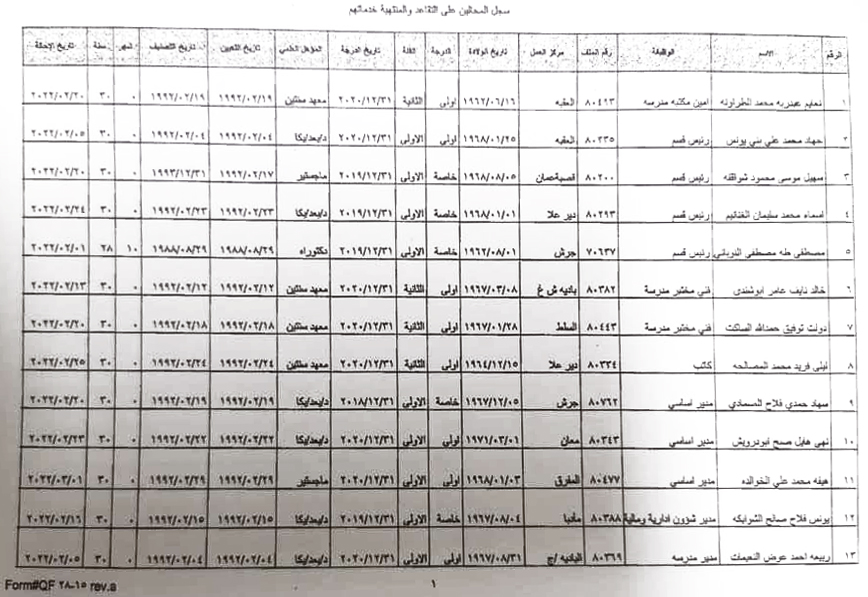 سجل المحالين على التقاعد والمنتهية خدماتهم
الرقم الاسم الوظيفة رقم الملف مركز العمل تاريخ الولادة الدرجة الفئة تاريخ الدرجة المؤهل العلمي تاريخ التعيين تاريخ التصنيف اشهر سنة تاريخ الإحالة
١ نعايم عبدربه محمد الطراونه امين مكتبه مدرسه ٨٠٤٩٣ العقبه ١٩٦٢/٠٦/١٦ اولى الثانية ٢٠٢٠/١٢/٣١ معهد سنتين ١٩٩٢/٠٢/١٩ ١٩٩٢/٠٢/١٩ ٠ ٣٠ ٢٠٢٢/٠٢/٢٠
٢ جهاد محمد علي بني يونس رئيس قسم ٨٠٢٣٥ العقبه ١٩٦٨/٠١/٢٥ اولى الاولى ٢٠٢٠/١٢/٣١ د/بعد/بكا ١٩٩٢/٠٢/٠٤ ١٩٩٢/٠٢/٠٤ ٠ ٣٠ ٢٠٢٢/٠٢/٠٥
٣ سهيل موسى محمود شواقفه رئيس قسم ٨٠٢٠٠ قصبة عمان ١٩٦٨/٠٨/٠٥ خاصة الاولى ٢٠١٩/١٢/٣١ ماجستير ١٩٩٢/٠٢/١٧ ١٩٩٣/١٢/٣١ ٠ ٣٠ ٢٠٢٢/٠٢/٢٠
٤ اسماء محمد سليمان الغنانيم رئيس قسم ٨٠٢٩٣ دير علا ١٩٦٨/٠١/٠١ خاصة الاولى ٢٠١٩/١٢/٣١ د/بعد/بكا ١٩٩٢/٠٢/٢٣ ١٩٩٢/٠٢/٢٣ ٠ ٣٠ ٢٠٢٢/٠٢/٢٤
٥ مصطفى طه مصطفى رئيس قسم ٧٠٦٣٧ جرش ١٩٦٢/٠٨/٠١ خاصة الاولى ٢٠١٩/١٢/٣١ دكتوراه ١٩٨٨/٠٨/٢٩ ١٩٨٨/٠٨/٢٩ ١٠ ٢٨ ٢٠٢٢/٠٢/٠١
٦ خالد نايف عامر ابوشندي فني مختبر مدرسة ٨٠٣٨٢ باديه ش غ ١٩٦٧/٠٣/٠٨ اولى الثانية ٢٠٢٠/١٢/٣١ معهد سنتين ١٩٩٢/٠٢/١٢ ١٩٩٢/٠٢/١٢ ٠ ٣٠ ٢٠٢٢/٠٢/١٣
٧ دولت توفيق حمدالله الساكت فني مختبر مدرسة ٨٠٤٤٣ السلط ١٩٦٧/٠١/٢٨ اولى الثانية ٢٠٢٠/١٢/٣١ معهد سنتين ١٩٩٢/٠٢/١٨ ١٩٩٢/٠٢/١٨ ٠ ٣٠ ٢٠٢٢/٠٢/٢٠
٨ ليلى فريد محمد المصالحه كاتب ٨٠٣٣٤ دير علا ١٩٦٤/١٢/١٥ اولى الثانية ٢٠٢٠/١٢/٣١ معهد سنتين ١٩٩٢/٠٢/٢٤ ١٩٩٢/٠٢/٢٤ ٠ ٣٠ ٢٠٢٢/٠٢/٢٥
٩ سهاد حمدي فلاح الصمادي مدير اساسي ٨٠٧٦٢ جرش ١٩٦٧/١٢/٠٥ خاصة الاولى ٢٠١٨/١٢/٣١ د/بعد/بكا ١٩٩٢/٠٢/١٩ ١٩٩٢/٠٢/١٩ ٠ ٣٠ ٢٠٢٢/٠٢/٢٠
١٠ نهى هايل صبح ابودرويش مدير اساسي ٨٠٣٤٣ معان ١٩٧١/٠٣/٠١ اولى الاولى ٢٠٢٠/١٢/٣١ د/بعد/بكا ١٩٩٢/٠٢/٢٢ ١٩٩٢/٠٢/٢٢ ٠ ٣٠ ٢٠٢٢/٠٢/٢٣
١١ هيفه محمد علي الخوالده مدير اساسي ٨٠٤٧٧ المفرق ١٩٦٨/٠١/٠٣ اولى الاولى ٢٠٢٠/١٢/٣١ ماجستير ١٩٩٢/٠٢/٢٩ ١٩٩٢/٠٢/٢٩ ٠ ٣٠ ٢٠٢٢/٠٣/٠١
١٢ يونس فلاح صالح الشوابكه مدير شؤون ادارية ومالية ٨٠٣٨٨ مأدبا ١٩٦٧/٠٨/٠٤ خاصة الاولى ٢٠١٩/١٢/٣١ د/بعد/بكا ١٩٩٢/٠٢/١٥ ١٩٩٢/٠٢/١٥ ٠ ٣٠ ٢٠٢٢/٠٢/١٦
١٣ ربيعه احمد عوض النعيمات مدير مدرسه ٨٠٣٦٩ الباديه /ج ١٩٦٧/٠٨/٣١ اولى الاولى ٢٠٢٠/١٢/٣١ د/بعد/بكا ١٩٩٢/٠٢/٠٤ ١٩٩٢/٠٢/٠٤ ٠ ٣٠ ٢٠٢٢/٠٢/٠٥
١
Form#QF ٢٨-١٥ rev.a